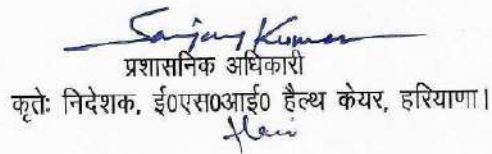 Sanjay Kumar
प्रशासनिक अधिकारी
कृतेः निदेशक, ई०एस०आई० हैल्थ केयर, हरियाणा।